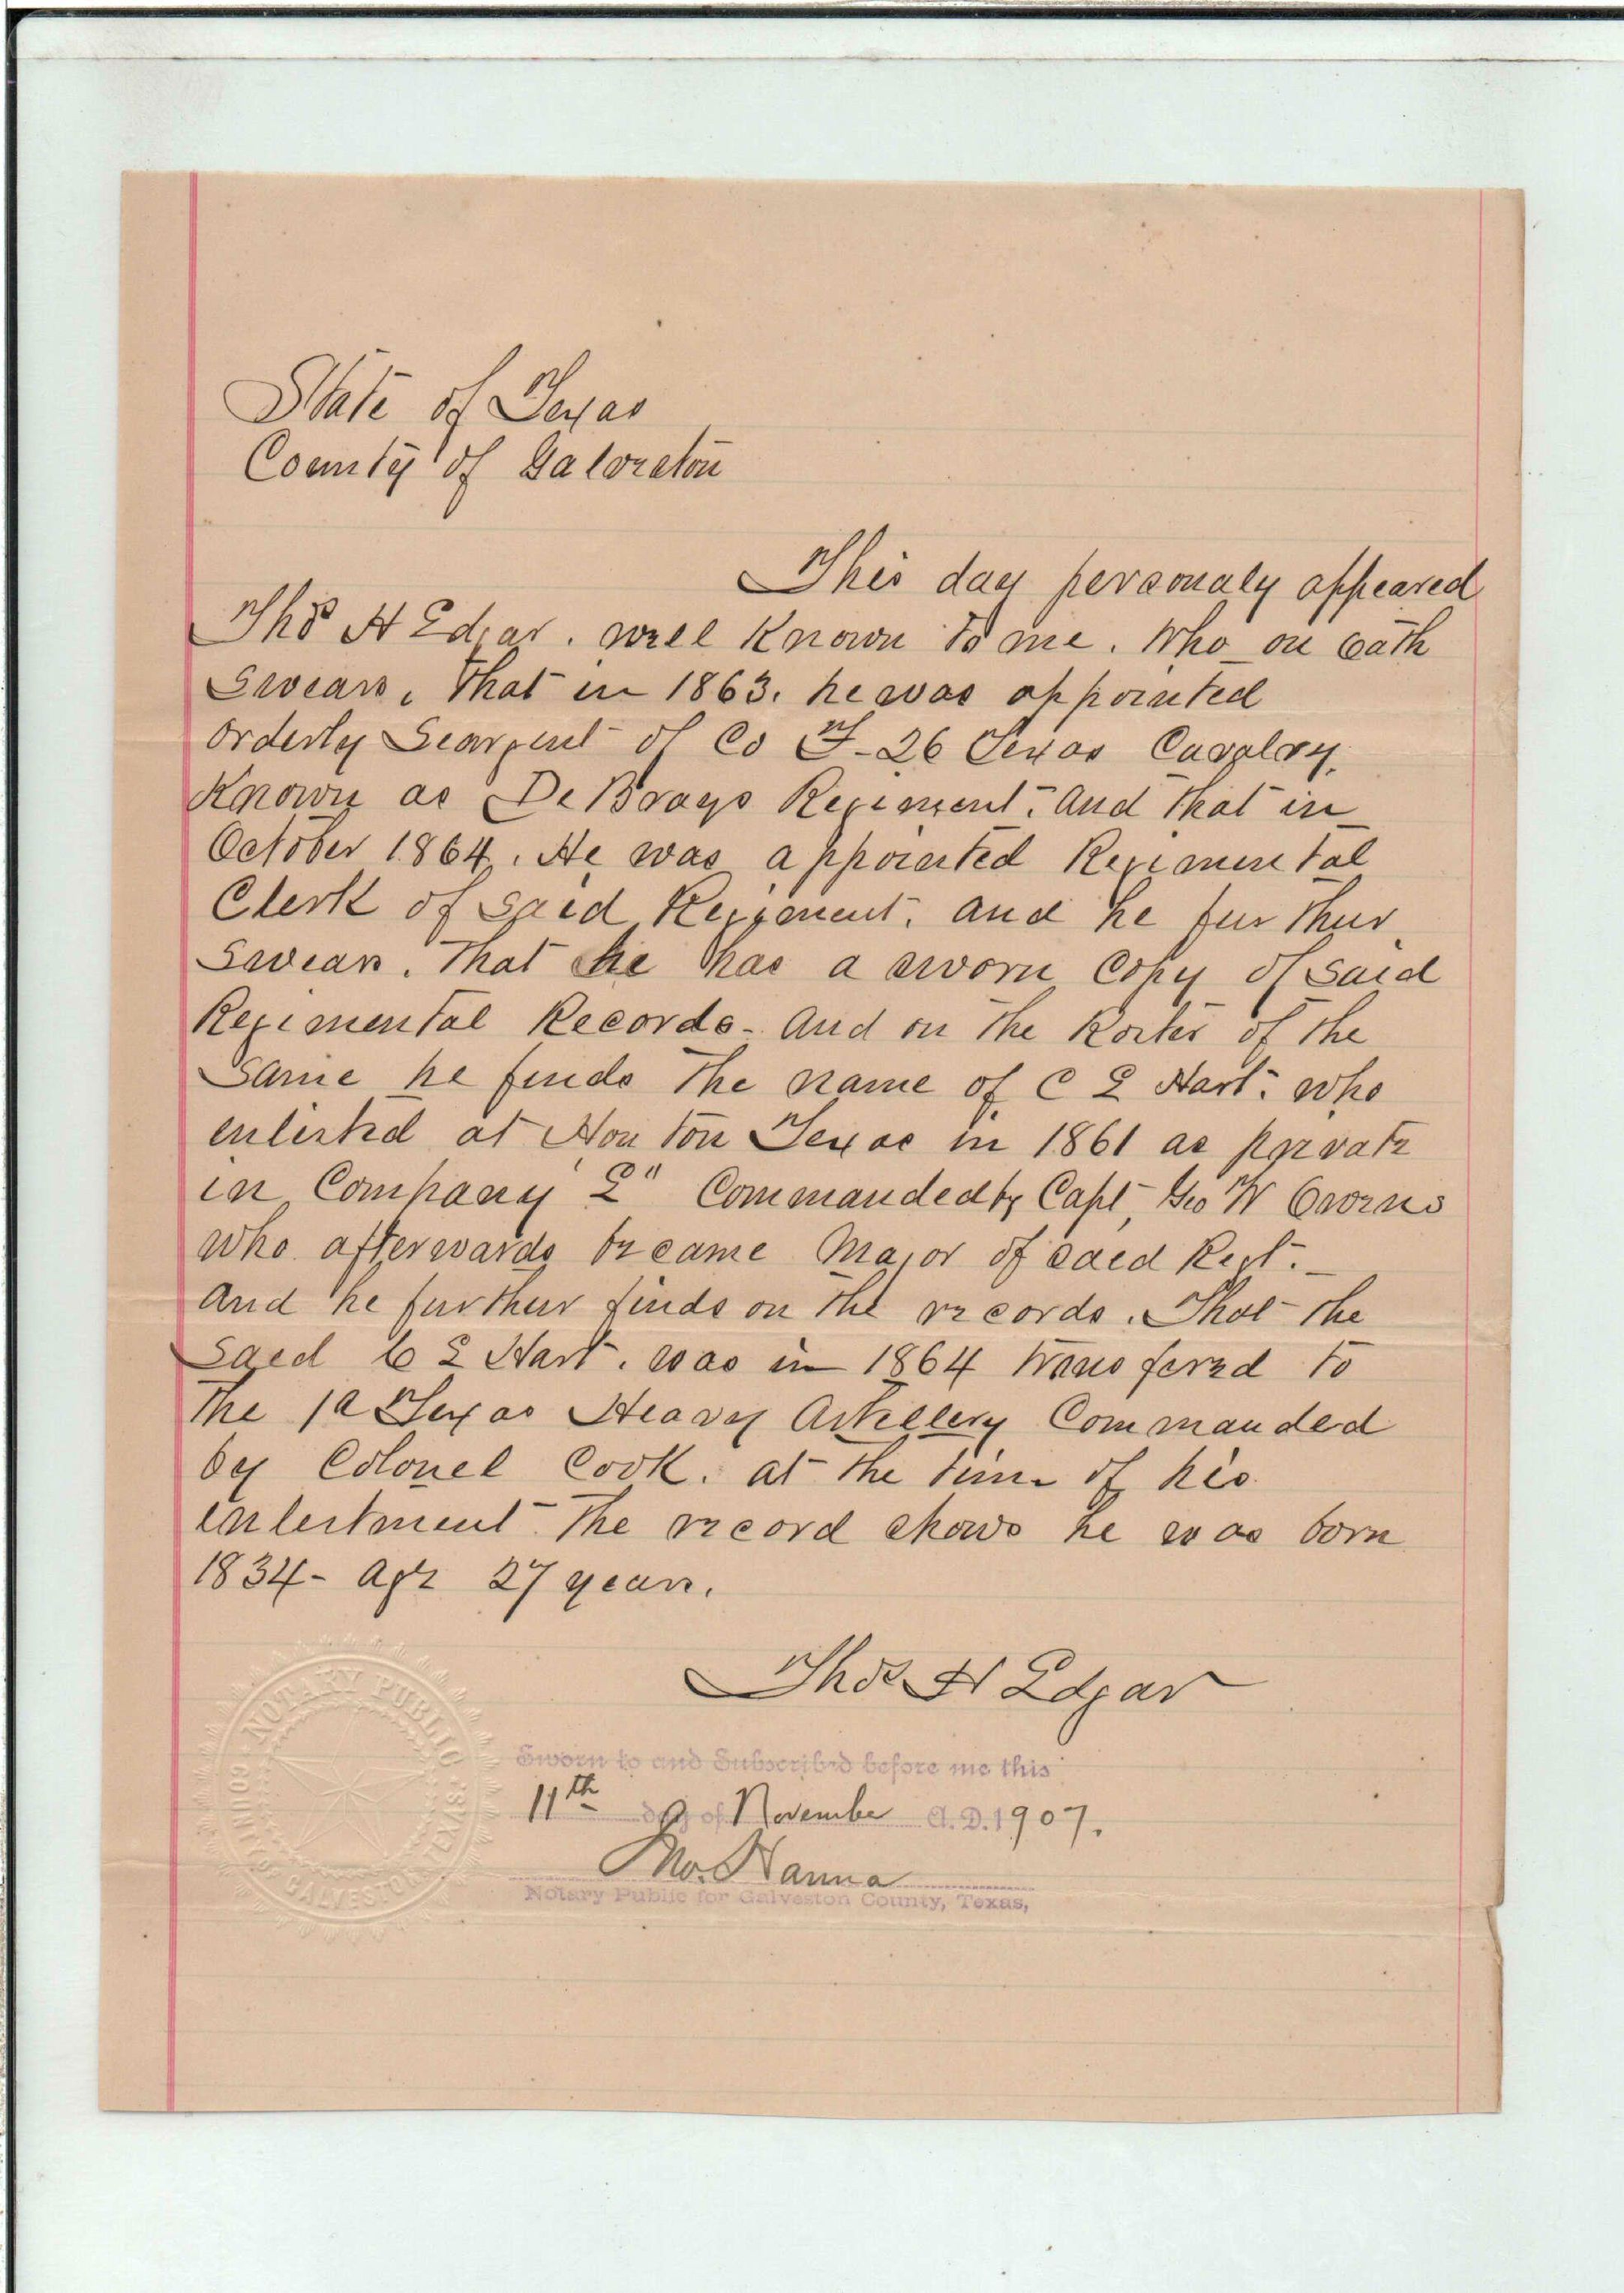 State of Texas
County of Galveston
This day personaly appeared
Thos H Edgar. well Known to me. Who on oath
Swears, that in 1863. he was appointed
Orderly Seargent of Co F-26 Texas Cavalry.
Known as DeBrays Regiment. And that in
October 1864. He was appointed Regimental
Clerk of said Regiment. and he further
Swears. That he has a sworn Copy of said
Regimental Records - And on the Roster of the
Same he finds the name of C E Hart. who
enlisted at Houston Texas in 1861 as private
in Company "E" Commanded by Capt, Geo W Owens
who afterwards became Major of said Regt. -
And he further finds on the records. That the
Said C E Hart. was in 1864 transfered to
the 1st Texas Heavy Artillery Commanded
by Colonel Cook. at the time of his
enlistment The record shows he was born
1834 - age 27 years.
Thos H Edgar
Sworn to and Subscribed before me this
11th day of November A.D. 1907.
Jno. Hanna
Notary Public for Galveston County, Texas,
NOTARY PUBLIC
COUNTY OF GALVESTON TEXAS